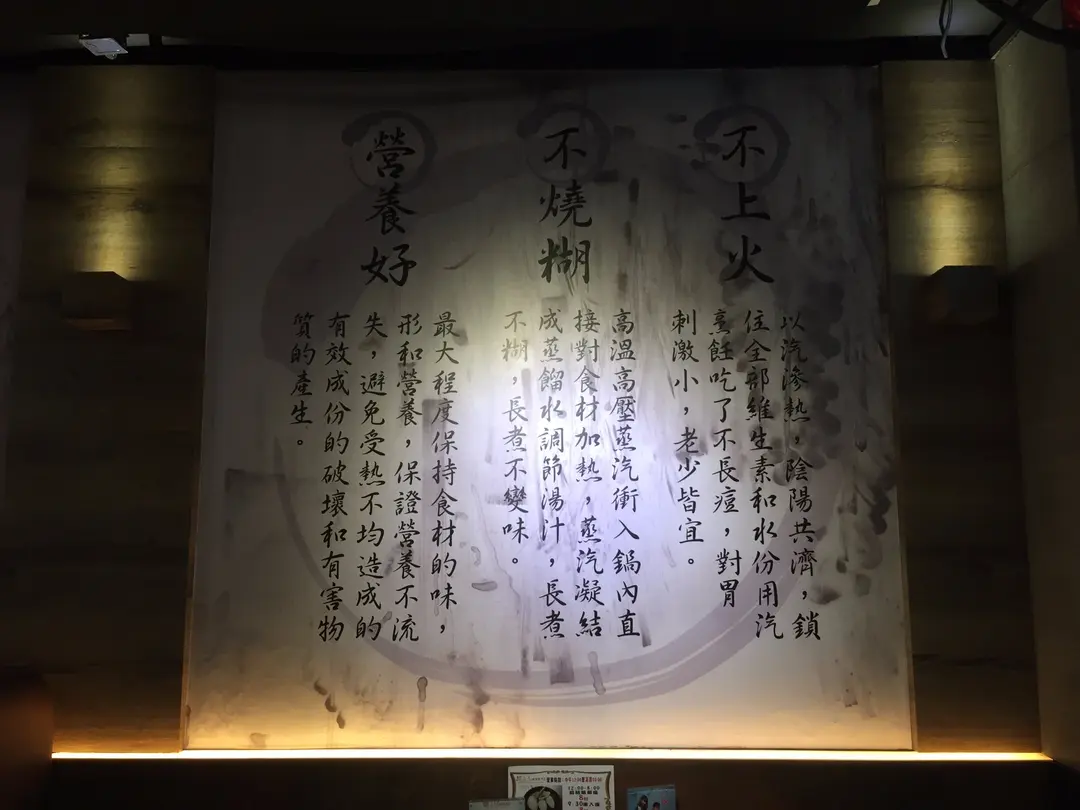 不上火
以汽滲熱，陰陽共濟，鎖
住全部維生素和水份用汽
烹飪吃了不長痘，對胃
刺激小，老少皆宜。
不燒糊
高溫高壓蒸汽衝入鍋內直
接對食材加熱，蒸汽凝結
成蒸餾水調節湯汁，長煮
不糊，長煮不變味。
營養好
最大程度保持食材的味，
形和營養，保證營養不流
失，避免受熱不均造成的
有效成份的破壞和有害物
質的產生。